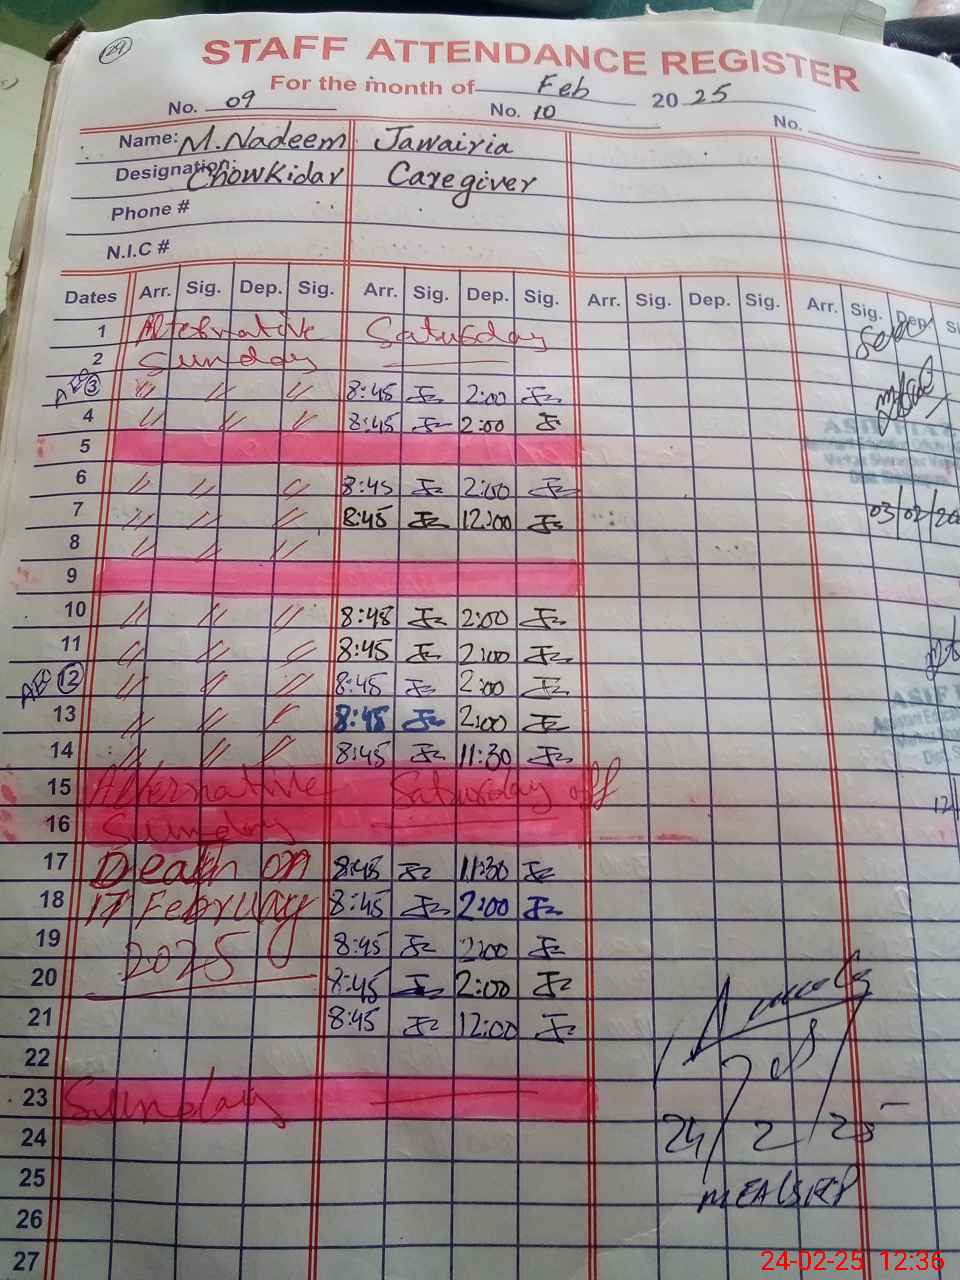 29
STAFF ATTENDANCE REGISTER
For the month of Feb 2025
No. 09 No. 10 No.
Name: M. Nadeem Jawairia
Designation: Chowkidar Caregiver
Phone #
N.I.C #
Dates Arr. Sig. Dep. Sig. Arr. Sig. Dep. Sig. Arr. Sig. Dep. Sig. Arr. Sig. Dep.
1 Alternative Saturday
2 Sunday
3 〃 〃 〃 8:45 2:00
4 〃 〃 〃 8:45 2:00
5
6 〃 〃 〃 8:45 2:00
7 〃 〃 〃 8:45 12:00
03/02/20
8 〃 〃 〃
9
10 〃 〃 〃 8:48 2:00
11 〃 〃 〃 8:45 2:00
12 〃 〃 〃 8:45 2:00
13 〃 〃 〃 8:45 2:00
14 〃 〃 〃 8:45 11:30
15 Alternative Saturday off
16 Sunday
17 Death on 8:45 11:30
18 17 February 8:45 2:00
19 2025 8:45 2:00
20 8:45 2:00
21 8:45 12:00
22
23 Sunday
24 24/2/25
25
26
27
24-02-25 12:36